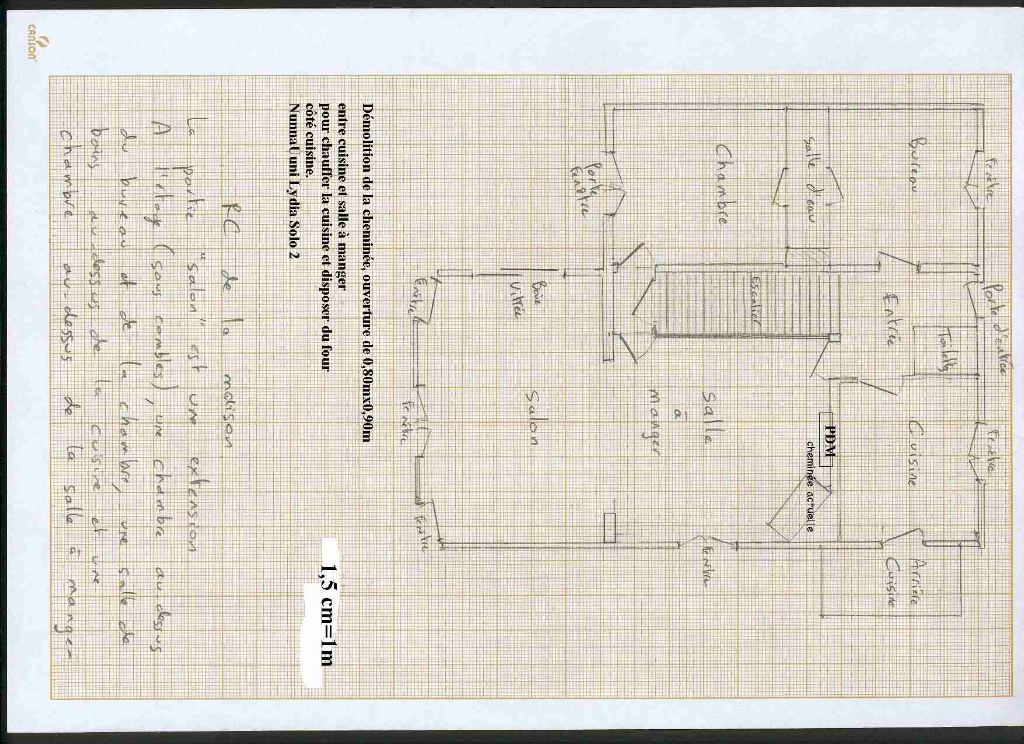 CANSON
Fenêtre
Porte d'entrée
Fenêtre
Bureau
Entrée
Toilettes
Cuisine
Arrière
Cuisine
Salle d'eau
Escalier
PDM
cheminée actuelle
Chambre
Salle
à
manger
Fenêtre
Porte
Fenêtre
Baie
Vitrée
Salon
Fenêtre
Fenêtre
Fenêtre
Démolition de la cheminée, ouverture de 0,80mx0,90m
entre cuisine et salle à manger
pour chauffer la cuisine et disposer du four
côté cuisine.
NunnaUuni Lydia Solo 2
1,5 cm=1m
RC de la maison
La partie "salon" est une extension
A l'étage (sous combles), une chambre au dessus
du bureau et de la chambre, une salle de
bains au-dessus de la cuisine et une
chambre au-dessus de la salle à manger